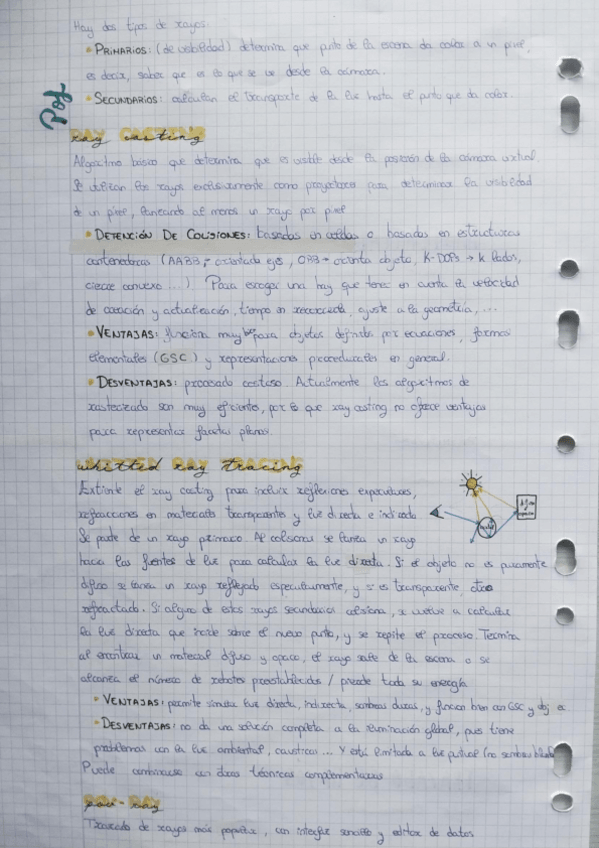 Hay dos tipos de rayos.
• PRIMARIOS: (de visibilidad) determina que punto de la escena da color a un pixel,
es decir, saber que es lo que se ve desde la cámara.
• SECUNDARIOS: calculan el transporte de la luz hasta el punto que da color.
ray casting
Algoritmo básico que determina que es visible desde la posición de la cámara virtual.
Se utilizan los rayos exclusivamente como proyectores para determinar la visibilidad
de un pixel, lanzando al menos un rayo por pixel
• DETENCIÓN DE COLISIONES: basadas en celdas o basadas en estructuras
contenedoras (AABB → orientada ejes, OBB → orienta objeto, K-DOPs → k lados,
cierre convexo ...). Para escoger una hay que tener en cuenta la velocidad
de creación y actualización, tiempo en recorrerla, ajuste a la geometría, ...
• VENTAJAS: funciona muy bien para objetos definidos por ecuaciones, formas
elementales (GSC) y representaciones procedurales en general.
• DESVENTAJAS: procesado costoso. Actualmente los algoritmos de
rasterizado son muy eficientes, por lo que ray casting no ofrece ventajas
para representar facetas planas.
whitted ray tracing
Extiende el ray casting para incluir reflexiones especulares,
refracciones en materiales transparentes y luz directa e indirecta
Se parte de un rayo primario. Al colisionar se lanza un rayo
hacia las fuentes de luz para calcular la luz directa. Si el objeto no es puramente
difuso se lanza un rayo reflejado especularmente, y si es transparente, otro
refractado. Si alguno de estos rayos secundarios colisiona, se vuelve a calcular
la luz directa que incide sobre el nuevo punto, y se repite el proceso. Termina
al encontrar un material difuso y opaco, el rayo sale de la escena o se
alcanza el número de rebotes preestablecidos / pierde toda su energía
• VENTAJAS: permite simular luz directa, indirecta, sombras duras, y funciona bien con GSC y obj
• DESVENTAJAS: no da una solución completa a la iluminación global, pues tiene
problemas con la luz ambiental, causticas ... Y está limitada a luz puntual (no sombras
Puede combinarse con otras técnicas complementarias
pov-ray
Trazado de rayos más popular, con interfaz sencilla y editor de datos